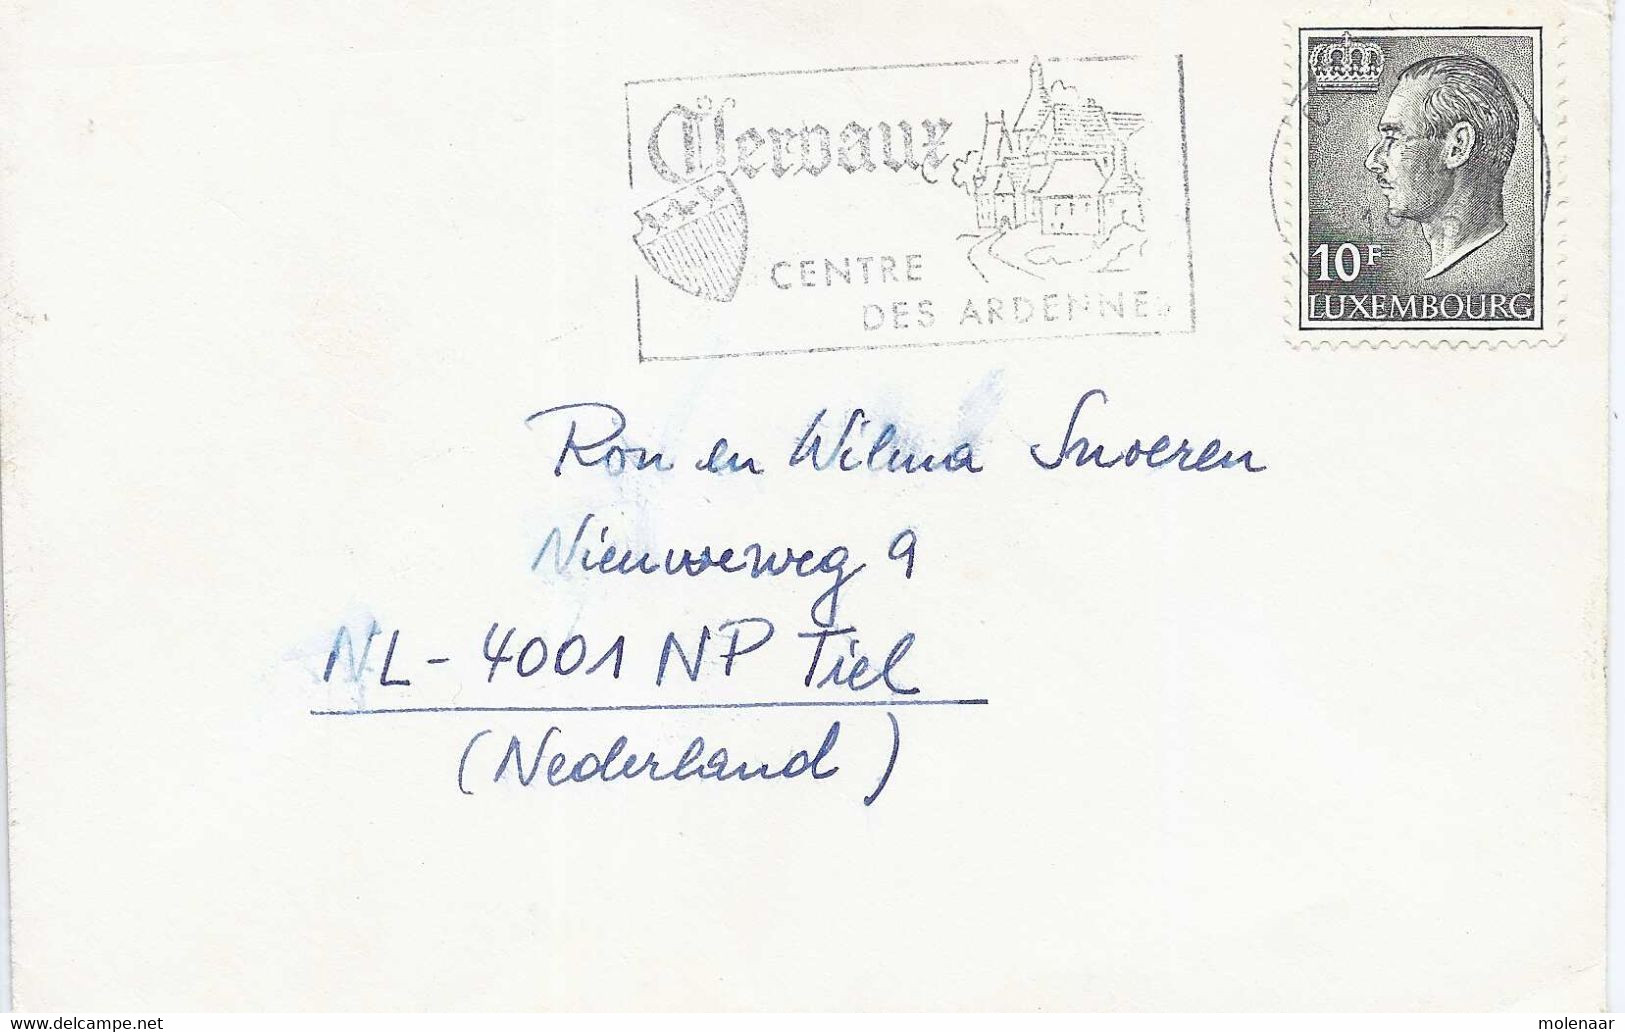 Clervaux
CENTRE
DES ARDENNES
10F
LUXEMBOURG
Ron en Wilma Snoeren
Nieuweweg 9
NL-4001 NP Tiel
(Nederland)
www.delcampe.net
molenaar